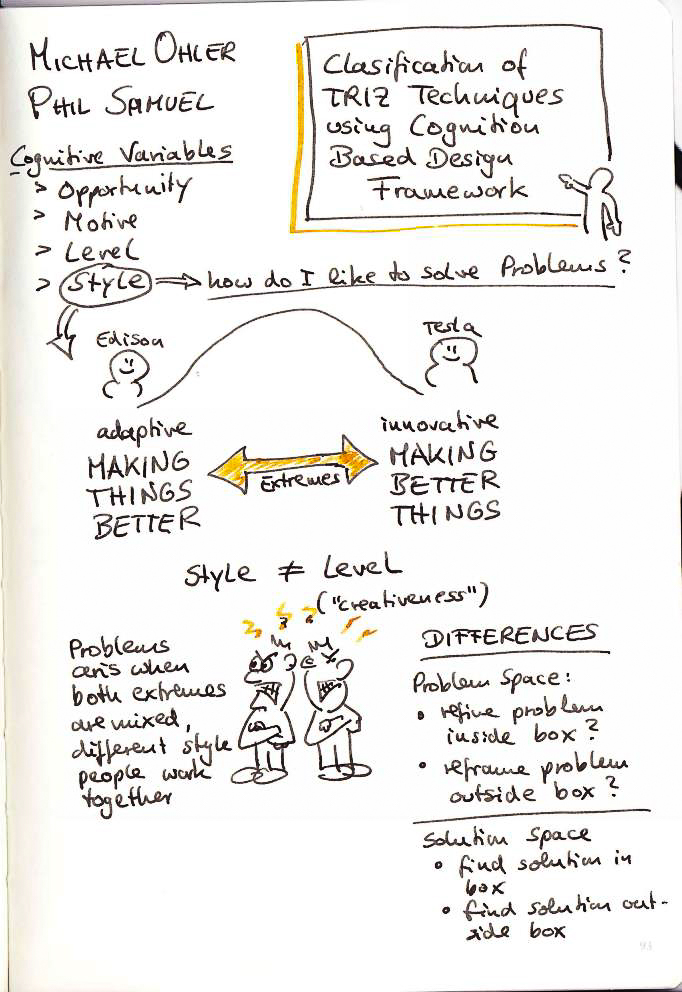 MICHAEL OHLER
PHIL SAMUEL
Clasification of
TRIZ Techniques
using Cognition
Based Design
Framework
Cognitive Variables
> Opportunity
> Motive
> Level
> Style => how do I like to solve Problems?
Edison
Tesla
adaptive
MAKING
THINGS
BETTER
Extremes
innovative
MAKING
BETTER
THINGS
Style ≠ Level
("creativeness")
Problems
aris when
both extremes
are mixed,
different style
people work
together
DIFFERENCES
Problem Space:
• refine problem
inside box?
• reframe problem
outside box?
Solution Space
• find solution in
box
• find solution out-
side box
93